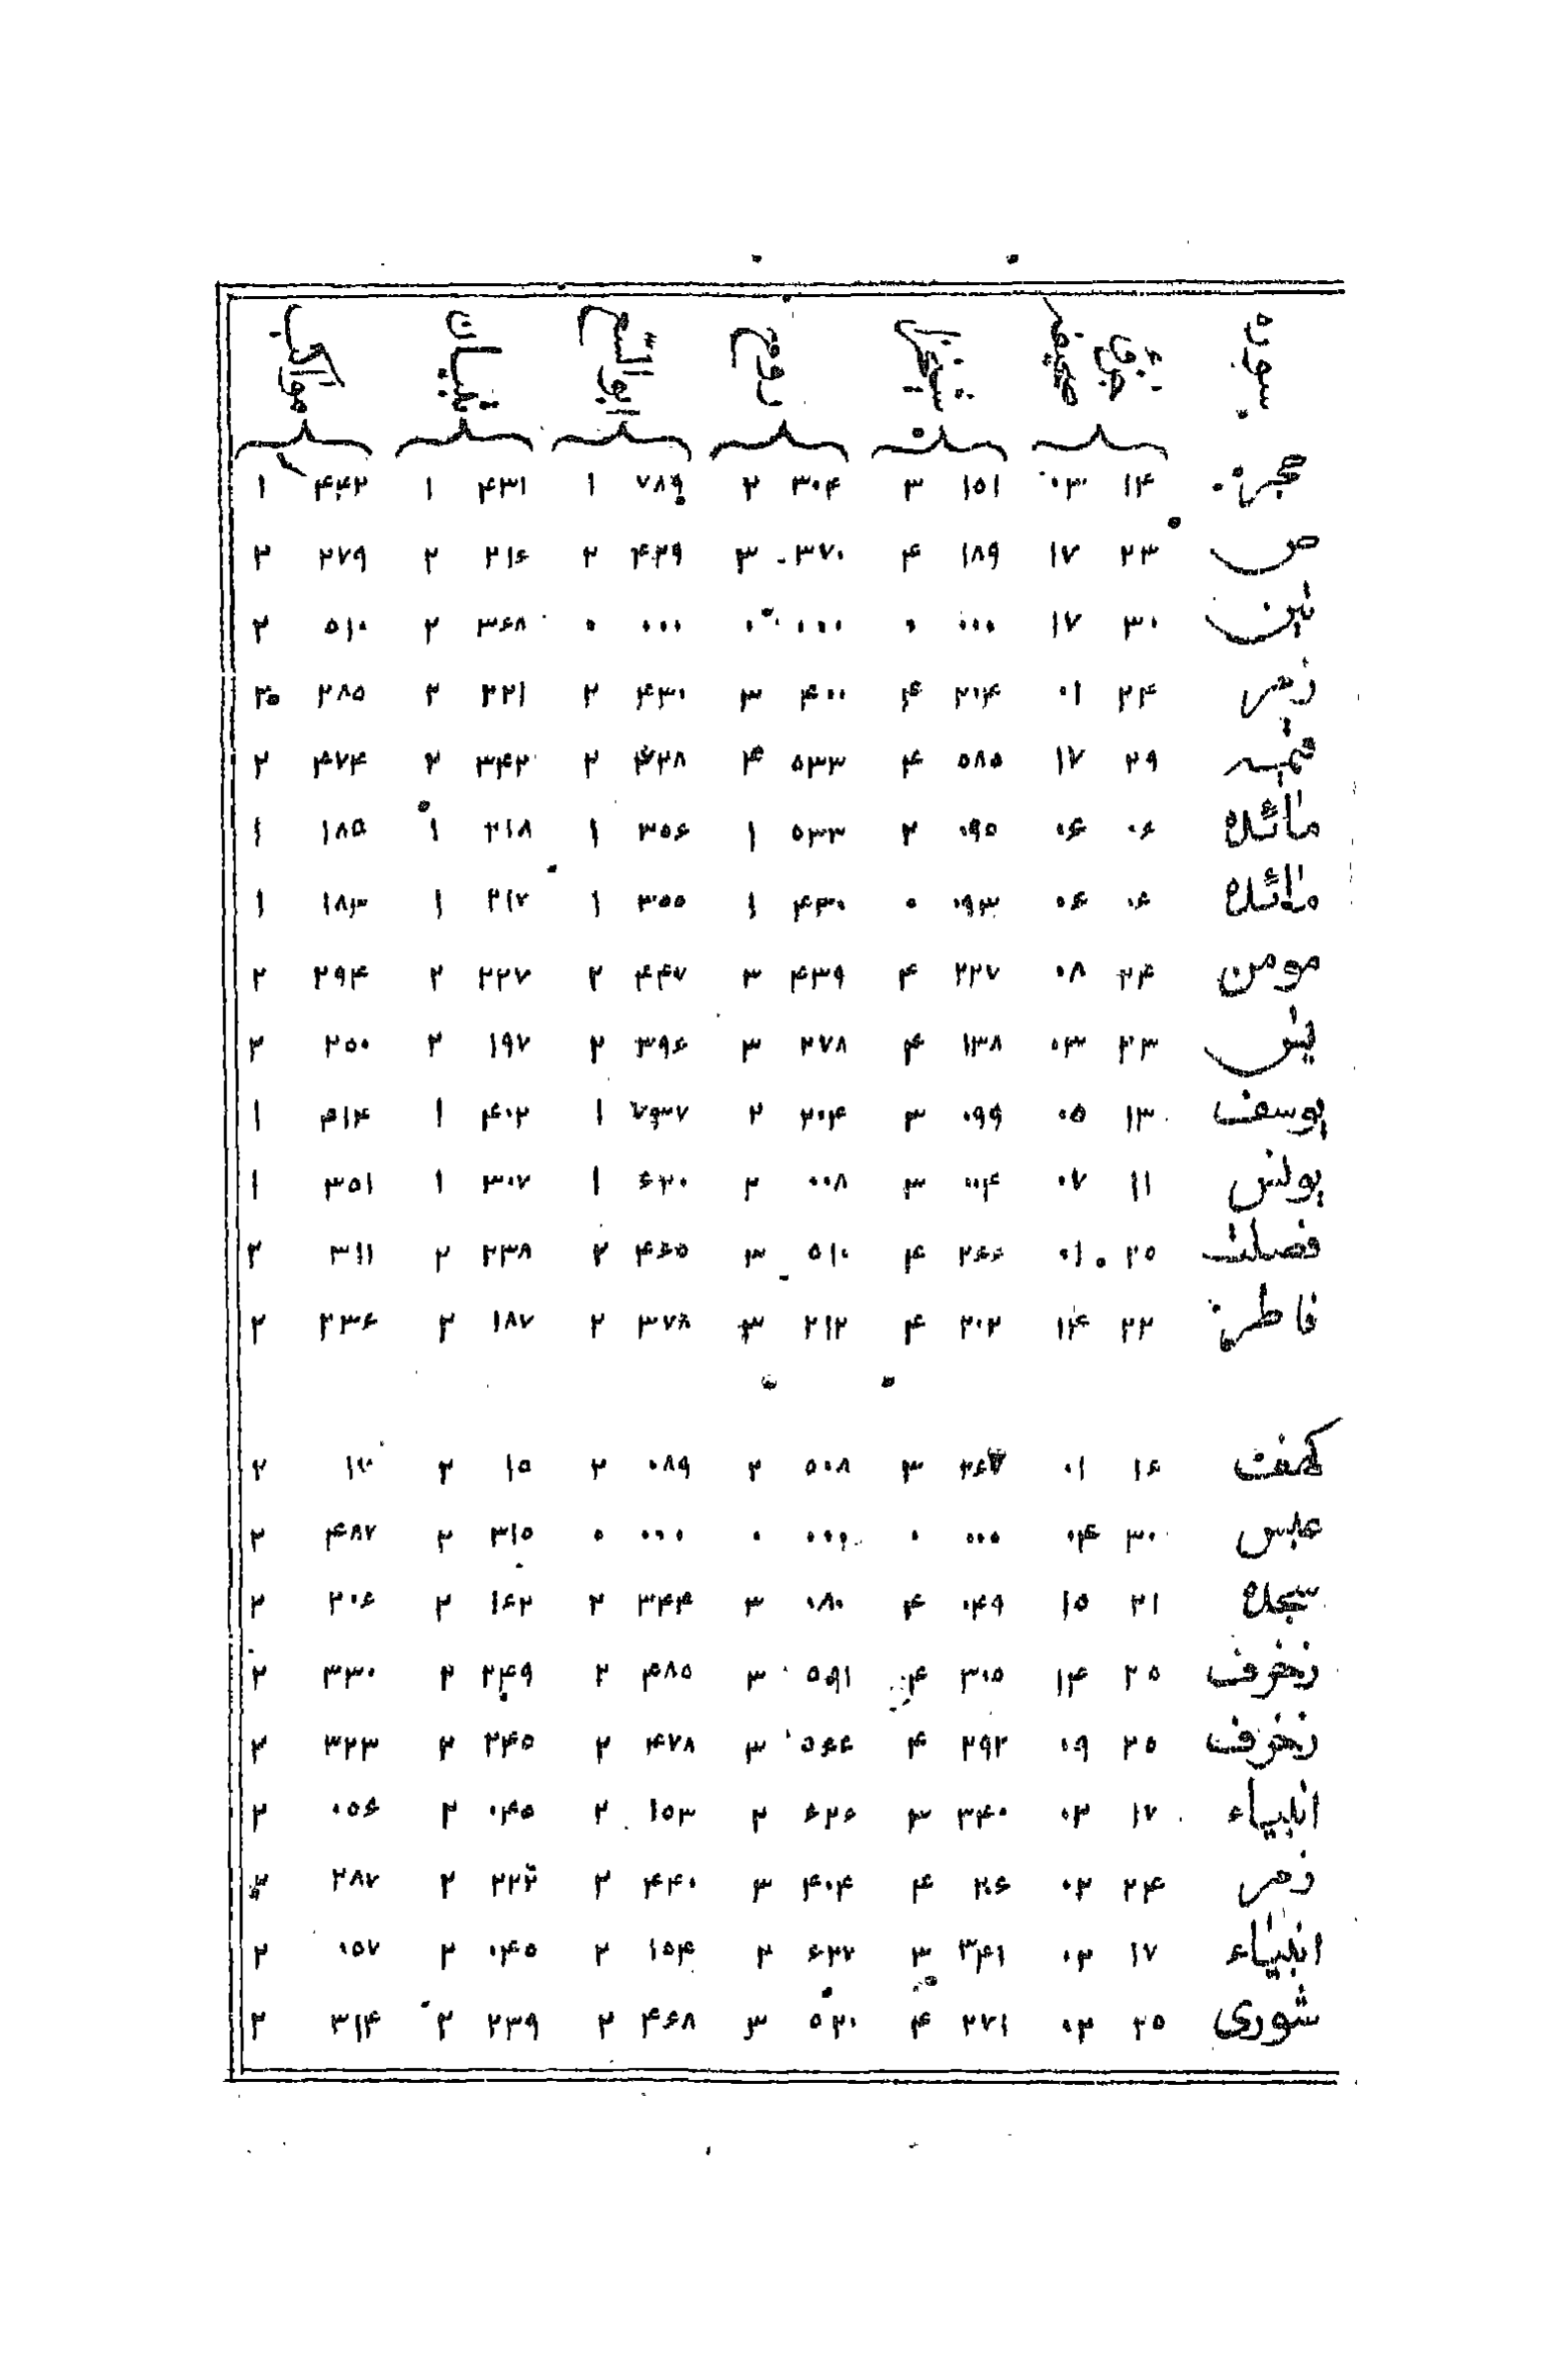 سوره جزؤ صحیفه شیخزاده روح ابوالسعود تبیان مواکب
حجر ۱۴ ۰۳ ۱۵۱ ۳ ۳۰۴ ۲ ۷۸۹ ۱ ۴۳۱ ۱ ۴۴۲ ۱
ص ۲۳ ۱۷ ۱۸۹ ۴ ۳۷۰ ۳ ۴۲۹ ۲ ۲۱۶ ۲ ۲۷۹ ۲
تین ۳۰ ۱۷ ۰۰۰ ۰ ۰۰۰ ۰ ۰۰۰ ۰ ۳۶۸ ۲ ۵۱۰ ۲
زمر ۲۴ ۰۱ ۲۰۴ ۴ ۴۰۰ ۳ ۴۳۰ ۲ ۲۲۱ ۲ ۲۸۵ ۲
۲۹ ۱۷ ۵۸۵ ۴ ۵۳۳ ۴ ۲ ۳۴۲ ۲ ۴۷۴ ۲
مائده ۰۶ ۰۶ ۰۹۵ ۲ ۵۳۳ ۱ ۳۵۶ ۱ ۲۱۸ ۱ ۱۸۵ ۱
مائده ۰۶ ۰۶ ۰۹۳ ۰ ۴۳۰ ۱ ۳۵۵ ۱ ۲۱۷ ۱ ۱۸۳ ۱
مومن ۲۴ ۰۸ ۲۲۷ ۴ ۴۳۹ ۳ ۴۴۷ ۲ ۲۲۷ ۲ ۲۹۴ ۲
یس ۲۳ ۰۳ ۱۳۸ ۴ ۲۷۸ ۳ ۳۹۶ ۲ ۱۹۷ ۲ ۲۵۰ ۲
یوسف ۱۳ ۰۵ ۰۹۹ ۳ ۲۰۴ ۲ ۷۳۷ ۱ ۴۰۲ ۱ ۴۱۴ ۱
یونس ۱۱ ۰۷ ۰۰۴ ۳ ۰۰۸ ۲ ۶۲۰ ۱ ۳۰۷ ۱ ۳۵۱ ۱
فصلت ۲۵ ۰۱ ۲۶۶ ۴ ۵۱۰ ۳ ۴۶۵ ۲ ۲۳۸ ۲ ۳۱۱ ۲
فاطر ۲۲ ۱۴ ۲۰۲ ۴ ۲۱۲ ۳ ۳۷۸ ۲ ۱۸۷ ۲ ۲۳۶ ۲
کهف ۱۶ ۰۱ ۲۶۷ ۳ ۵۰۸ ۲ ۰۸۹ ۲ ۱۵ ۲ ۲
عبس ۳۰ ۰۴ ۰۰۰ ۰ ۰۰۰ ۰ ۰۰۰ ۰ ۳۱۵ ۲ ۴۸۷ ۲
سجده ۲۱ ۱۵ ۰۴۹ ۴ ۰۸۰ ۳ ۳۴۴ ۲ ۱۶۲ ۲ ۲۰۶ ۲
زخرف ۲۵ ۱۴ ۳۰۵ ۴ ۵۹۱ ۳ ۴۸۵ ۲ ۲۴۹ ۲ ۳۳۰ ۲
زخرف ۲۵ ۰۹ ۲۹۲ ۴ ۵۶۶ ۳ ۴۷۸ ۲ ۲۴۵ ۲ ۳۲۳ ۲
انبیاء ۱۷ ۰۲ ۳۴۰ ۳ ۶۲۶ ۲ ۱۵۳ ۲ ۰۴۵ ۲ ۰۵۶ ۲
زمر ۲۴ ۰۲ ۴ ۴۰۴ ۳ ۴۴۰ ۲ ۲۲۲ ۲ ۲۸۷ ۲
انبیاء ۱۷ ۰۲ ۳۴۱ ۳ ۶۲۷ ۲ ۱۵۴ ۲ ۰۴۵ ۲ ۰۵۷ ۲
شوری ۲۵ ۰۲ ۲۷۱ ۴ ۵۲۰ ۳ ۴۶۸ ۲ ۲۳۹ ۲ ۳۱۴ ۲